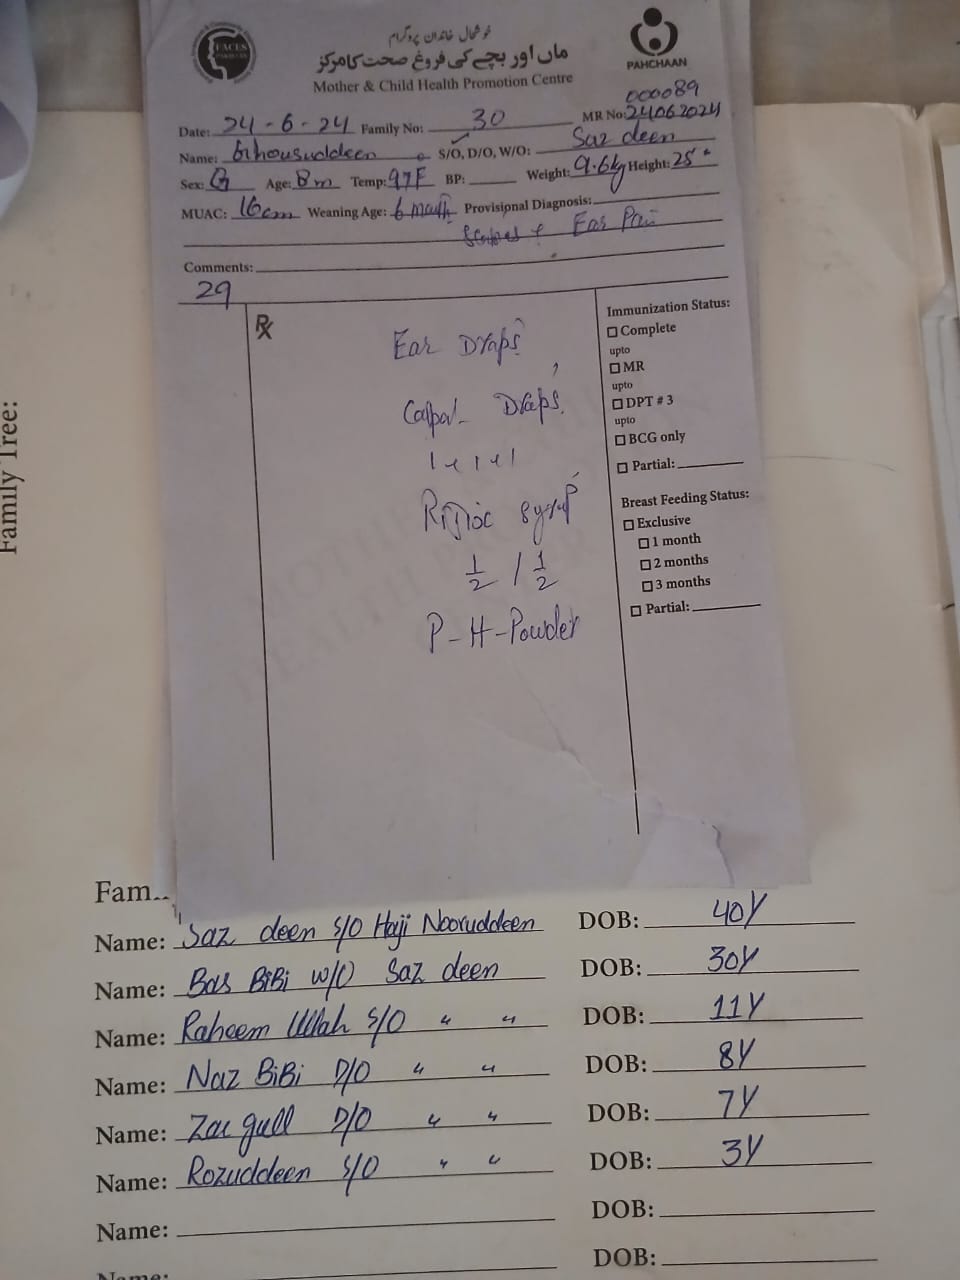 FACES
خوشحال خاندان پروگرام
ماں اور بچے کی فروغ صحت کا مرکز
Mother & Child Health Promotion Centre
PAHCHAAN
000089
Date: 24-6-24 Family No: 30 MR No: 24062024
Name: S/O, D/O, W/O: Saz deen
Sex: Age: 8m Temp: 97F BP: Weight: 9.6kg Height: 25"
MUAC: 16cm Weaning Age: 6 month Provisional Diagnosis:
Ear Pain
Comments:
29
Rx
Ear Drops
Calpol Drops
1+1+1
syrup
1/2 / 1/2
P-H-Powder
Immunization Status:
Complete
upto
MR
upto
DPT # 3
upto
BCG only
Partial:
Breast Feeding Status:
Exclusive
1 month
2 months
3 months
Partial:
Family Tree:
Fam
Name: Saz deen S/O Haji Nooruddeen DOB: 40Y
Name: Bas BiBi W/O Saz deen DOB: 30Y
Name: Raheem Ullah S/O " " DOB: 11Y
Name: Naz BiBi D/O " " DOB: 8Y
Name: Zar gull D/O " " DOB: 7Y
Name: Rozuddeen S/O " " DOB: 3Y
Name: DOB:
Name: DOB: